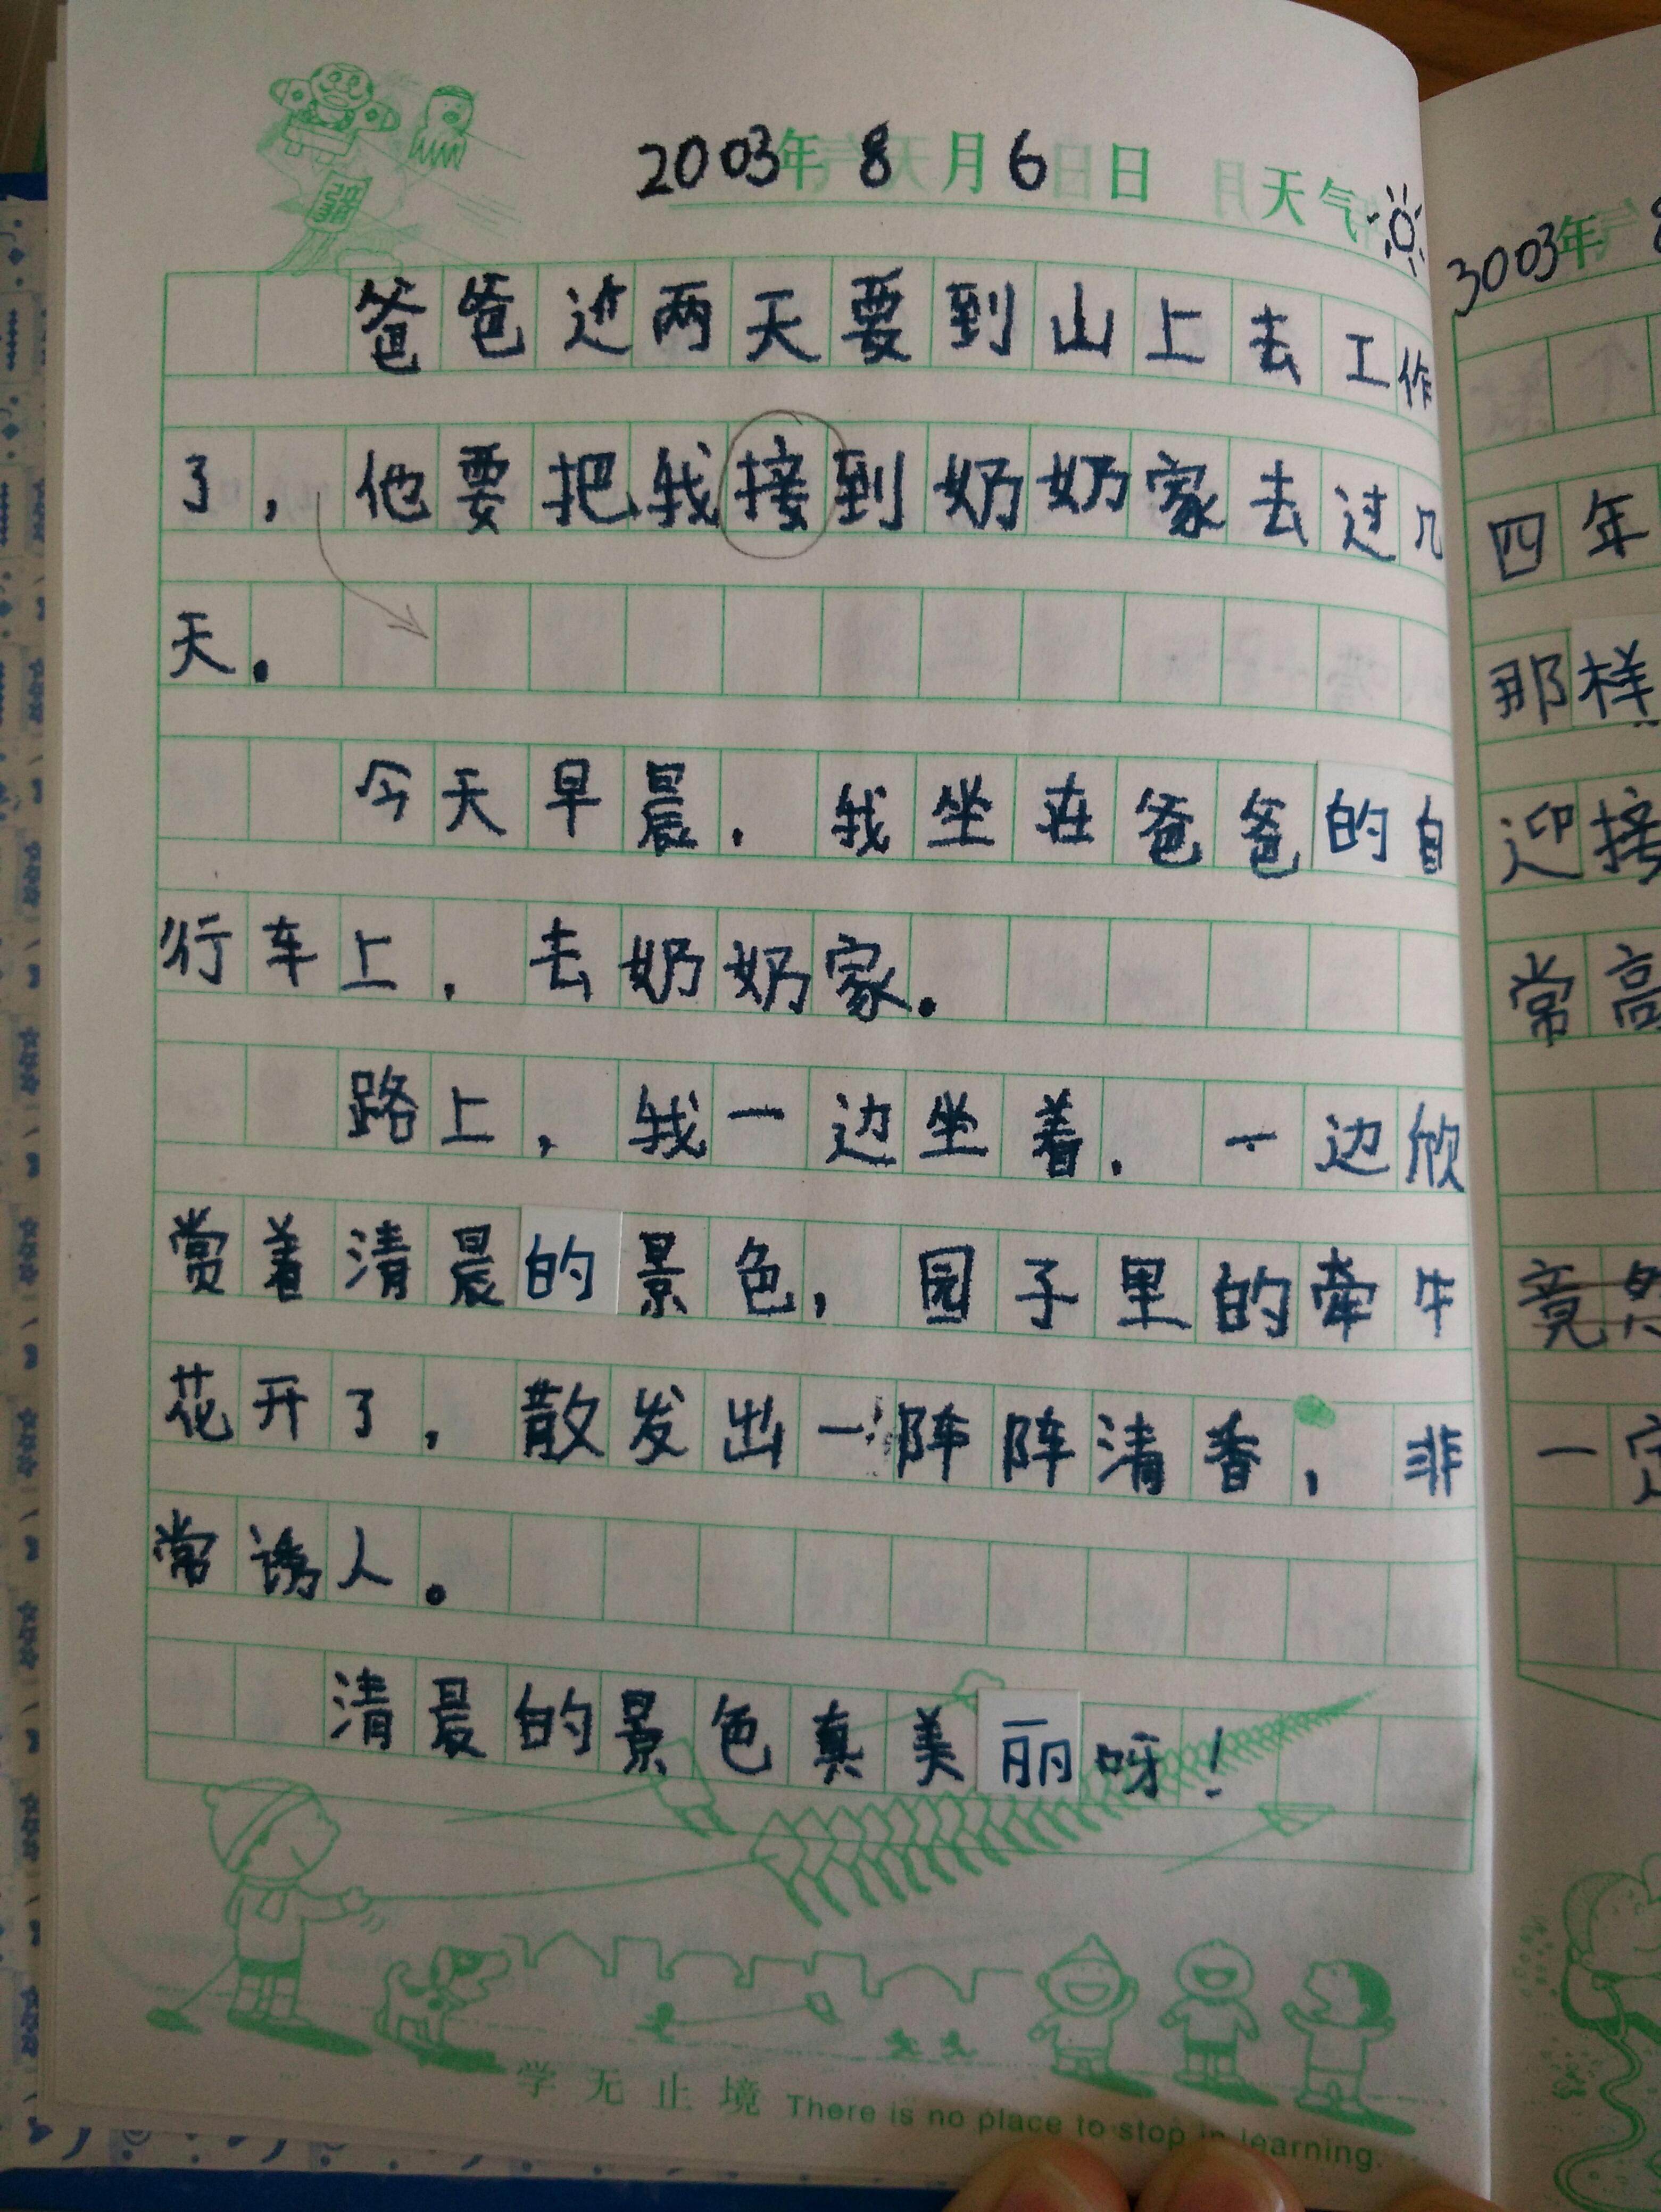 2003年 8月 6日 天气
爸爸过两天要到山上去工作
了，他要把我接到奶奶家去过几
天。
今天早晨，我坐在爸爸的自
行车上，去奶奶家。
路上，我一边坐着，一边欣
赏着清晨的景色，园子里的牵牛
花开了，散发出一阵阵清香，非
常诱人。
清晨的景色真美丽呀！
学无止境 There is no place to stop in learning.
3003年 8
四年
那样
迎接
常高
竟然
一定